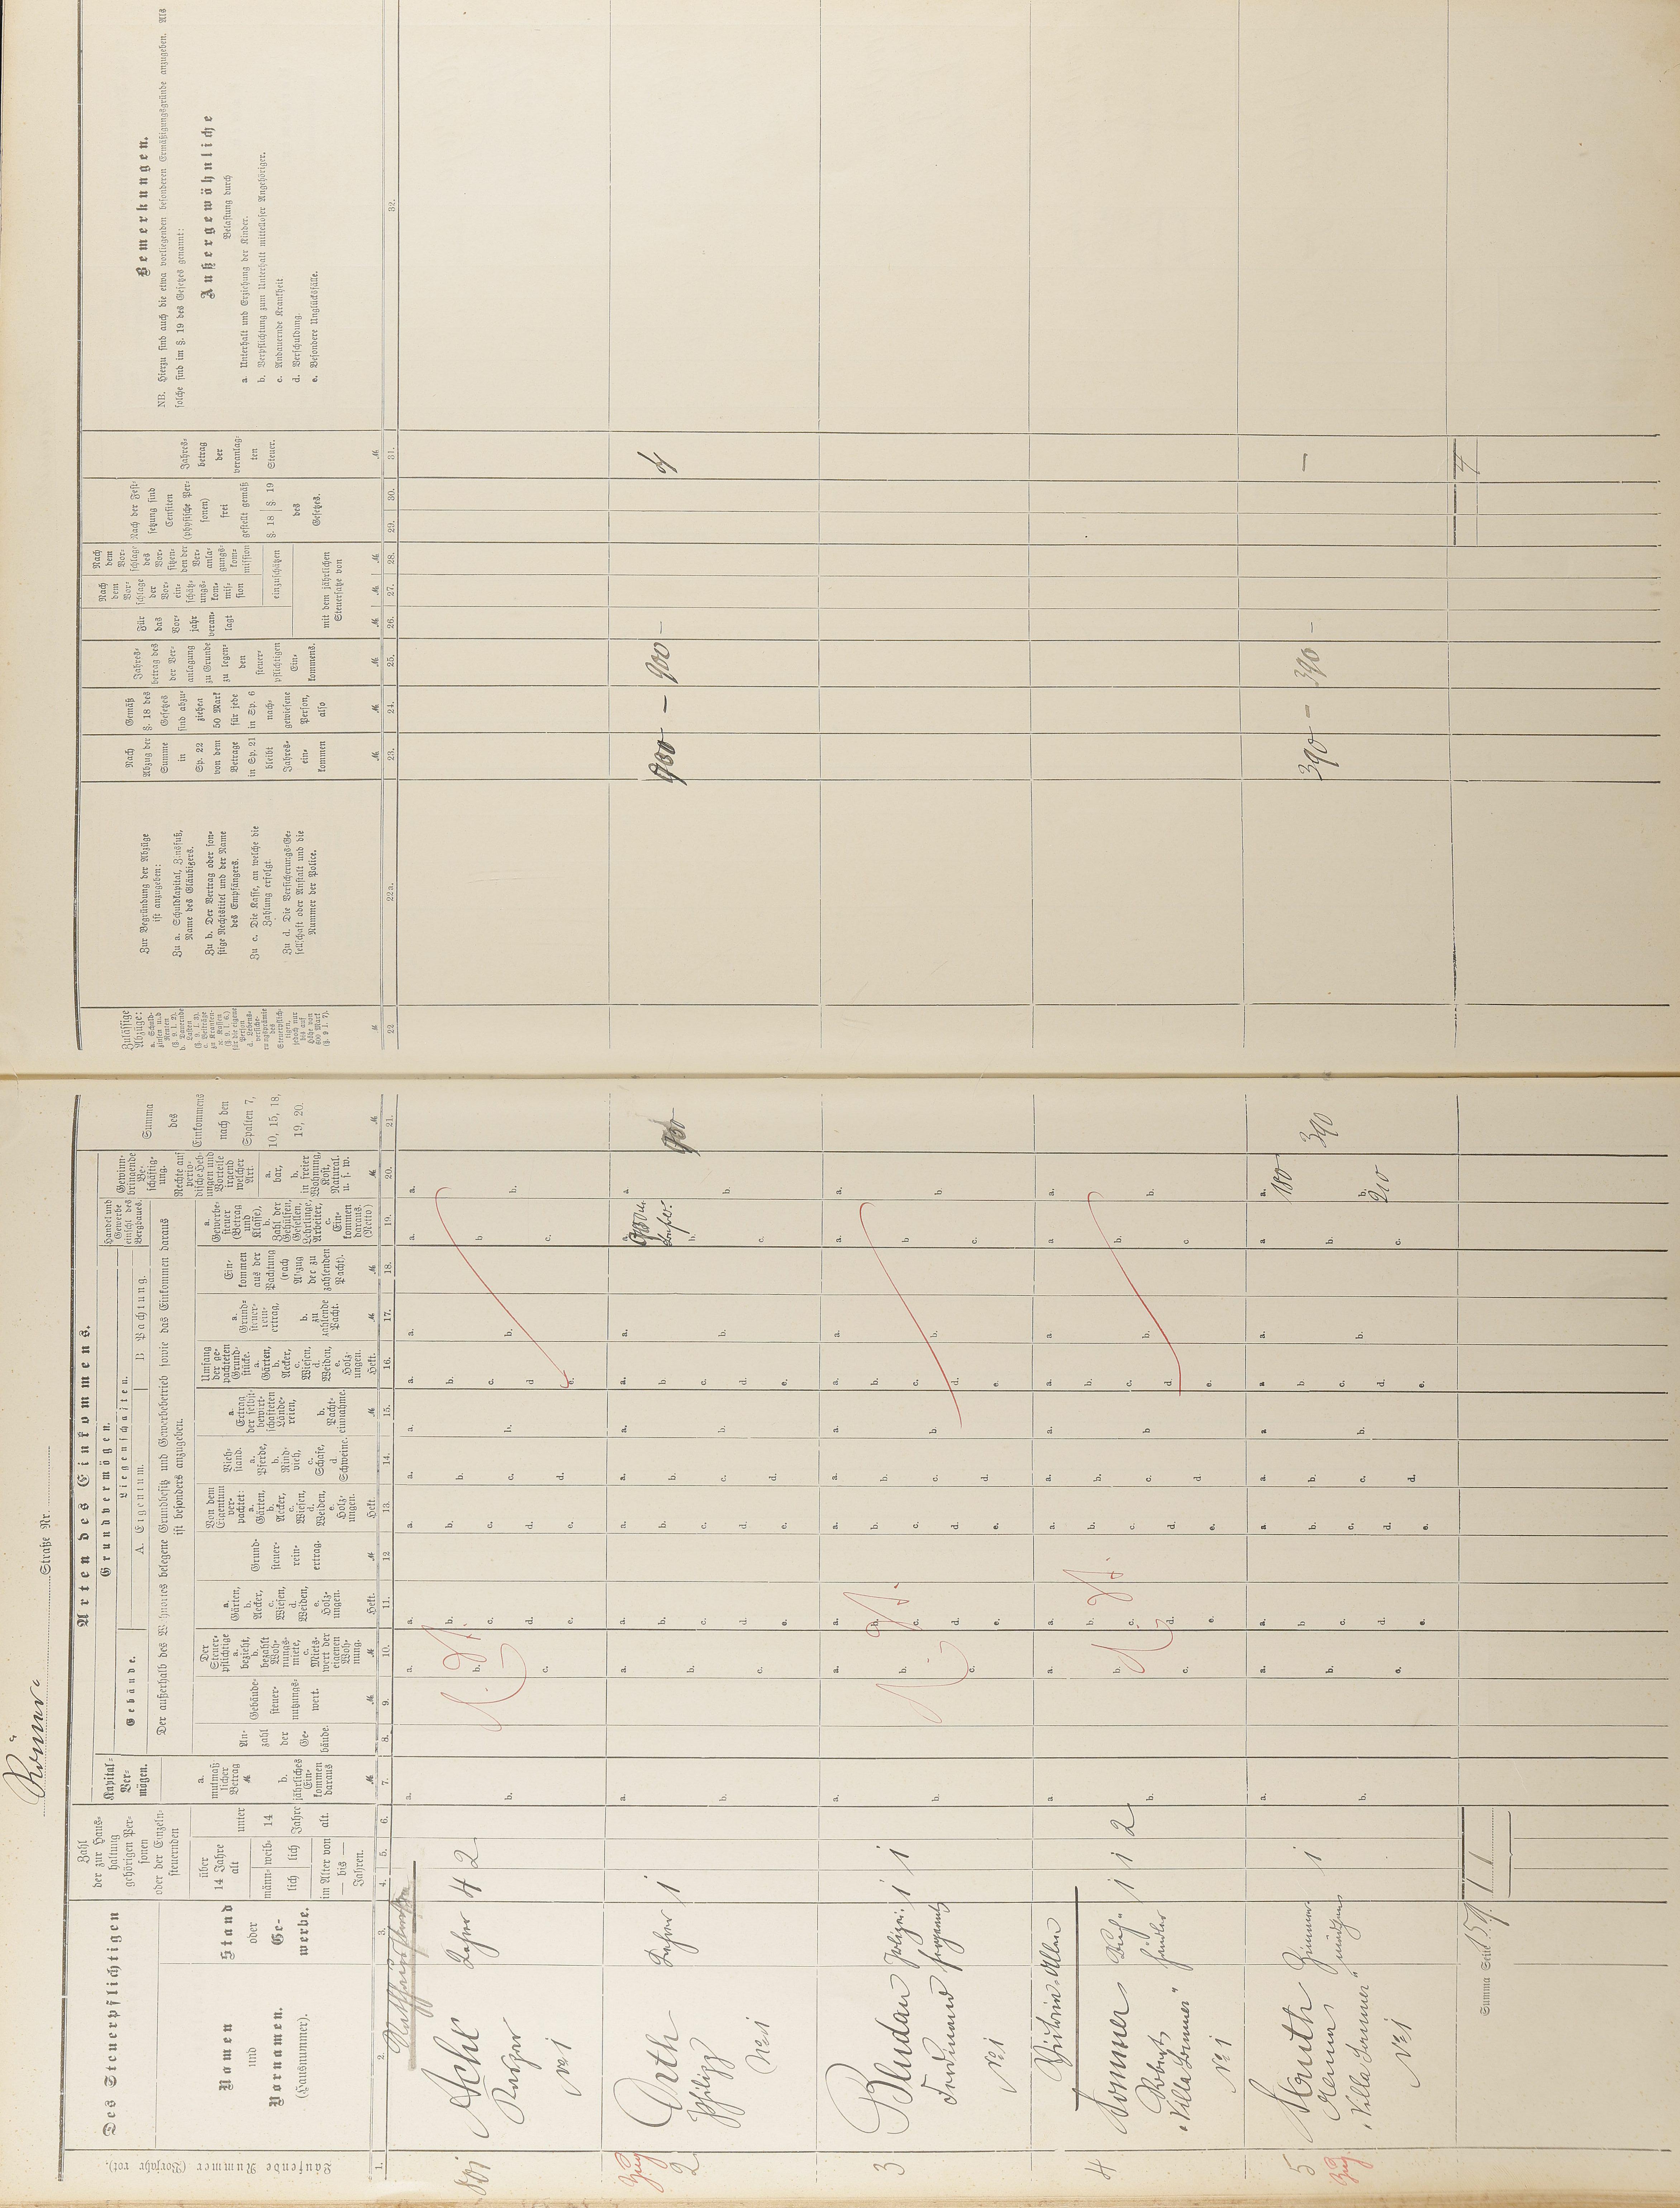 Römer-
Straße Nr.
Des Steuerpflichtigen
Laufende Nummer (Vorjahr rot).
Namen
und
Vornamen.
(Hausnummer).
Stand
oder
Ge-
werbe.
Zahl
der zur Haus-
haltung
gehörigen Per-
sonen
oder der Einzeln-
steuernden
über
14 Jahre
alt
unter
14
Jahre
alt.
männ-
lich
weib-
lich
im Alter von
— bis —
Jahren.
Arten des Einkommens.
Kapital-
Ver-
mögen.
a.
mutmaß-
licher
Betrag
M
b.
jährliches
Ein-
kommen
daraus
M
Grundvermögen.
Gebäude.
Liegenschaften.
A. Eigentum.
B. Pachtung.
Der außerhalb des Wohnortes belegene Grundbesitz und Gewerbebetrieb sowie das Einkommen daraus
ist besonders anzugeben.
An-
zahl
der
Ge-
bäude.
Gebäude-
steuer-
nutzungs-
wert.
M
Der
Steuer-
pflichtige
a.
bezieht,
b.
bezahlt
Woh-
nungs-
miete,
c.
Miets-
wert der
eigenen
Woh-
nung.
M
a.
Gärten,
b.
Aecker,
c.
Wiesen,
d.
Weiden,
e.
Holz-
ungen.
Hekt.
Grund-
steuer-
rein-
ertrag.
M
Von dem
Eigentum
ver-
pachtet:
a.
Gärten,
b.
Aecker,
c.
Wiesen,
d.
Weiden,
e.
Holz-
ungen.
Hekt.
Vieh-
stand.
a.
Pferde,
b.
Rind-
vieh,
c.
Schafe,
d.
Schweine.
a.
Ertrag
der selbst-
bewirt-
schafteten
Lände-
reien,
b.
Pacht-
einnahme.
M
Umfang
der ge-
pachteten
Grund-
stücke.
a.
Gärten,
b.
Aecker,
c.
Wiesen,
d.
Weiden,
e.
Holz-
ungen.
Hekt.
a.
Grund-
steuer-
rein-
ertrag,
b.
zu
zahlende
Pacht.
M
Ein-
kommen
aus der
Pachtung
(nach
Abzug
der zu
zahlenden
Pacht).
M
Handel und
Gewerbe
einschl. des
Bergbaues.
a.
Gewerbe-
steuer
(Betrag
und
Klasse),
b.
Zahl der
Gehülfen,
Gesellen,
Lehrlinge,
Arbeiter,
c.
Ein-
kommen
daraus.
(Netto)
Gewinn-
bringende
Be-
schäftig-
ung.
Rechte auf
perio-
dische Heb-
ungen und
Vorteile
irgend
welcher
Art.
a.
bar,
b.
in freier
Wohnung,
Kost,
Natural.
u. s. w.
M
Summa
des
Einkommens
nach den
Spalten 7,
10, 15, 18,
19, 20.
M
1. 2. 3. 4. 5. 6. 7. 8. 9. 10. 11. 12 13. 14. 15. 16. 17. 18. 19. 20. 21.
Zulässige
Abzüge:
a. Schuld-
zinsen und
Renten
(§. 9. I. 2).
b. Dauernde
Lasten
(§. 9. I. 3).
c. Beiträge
zu Kranken-
2c. Kassen
(§. 9. I. 6.)
für die eigene
Person
d. Lebens-
versiche-
rungsprämie
des
Steuerpflich-
tigen,
jedoch nur
bis auf
Höhe von
600 Mark
(§. 9 I. 7).
M
Zur Begründung der Abzüge
ist anzugeben:
Zu a. Schuldkapital, Zinsfuß,
Name des Gläubigers.
Zu b. Der Vertrag oder son-
stige Rechtstitel und der Name
des Empfängers.
Zu c. Die Kasse, an welche die
Zahlung erfolgt.
Zu d. Die Versicherungs-Ge-
sellschaft oder Anstalt und die
Nummer der Police.
Nach
Abzug der
Summe
in
Sp. 22
von dem
Betrage
in Sp. 21
bleibt
Jahres-
ein-
kommen
M
Gemäß
§. 18 des
Gesetzes
sind abzu-
ziehen
50 Mark
für jede
in Sp. 6
nach-
gewiesene
Person,
also
M
Jahres-
betrag des
der Ver-
anlagung
zu Grunde
zu legen-
den
steuer-
pflichtigen
Ein-
kommens.
M
Für
das
Vor-
jahr
veran-
lagt
Nach
dem
Vor-
schlage
der
Vor-
ein-
schätz-
ungs-
kom-
mis-
sion
Nach
dem
Vor-
schlage
des
Vor-
sitzen-
den der
Ver-
anla-
gungs-
kom-
mission
einzuschätzen
mit dem jährlichen
Steuersatze von
M M M
Nach der Fest-
setzung sind
Censiten
(physische Per-
sonen)
frei
gestellt gemäß
§. 18 §. 19
des
Gesetzes.
Jahres-
betrag
der
veranlag-
ten
Steuer.
M
Bemerkungen.
NB. Hierzu sind auch die etwa vorliegenden besonderen Ermäßigungsgründe anzugeben. Als
solche sind im §. 19 des Gesetzes genannt:
Außergewöhnliche
Belastung durch
a. Unterhalt und Erziehung der Kinder.
b. Verpflichtung zum Unterhalt mittelloser Angehöriger.
c. Andauernde Krankheit
d. Verschuldung.
e. Besondere Unglücksfälle.
22 22a. 23. 24. 25. 26. 27. 28. 29. 30. 31. 32.
Achl Lehrer 4 2
No 1
Zug
2 Arth Lehrer 1 900 900 — 900 — 4
Philipp
No 1
3 Bludau Polizei- 1 1
Ferdinand sergeant
No 1
Viktoria-Allee
4 Sommer Buch- 1 1 2
Robert händler
"Villa Sommer"
No 1
5 Zimmer- 1 180 390 390 — 390 — —
Zug
"Villa Sommer" 210
No 1
Summa Seite 159. 1 1 4